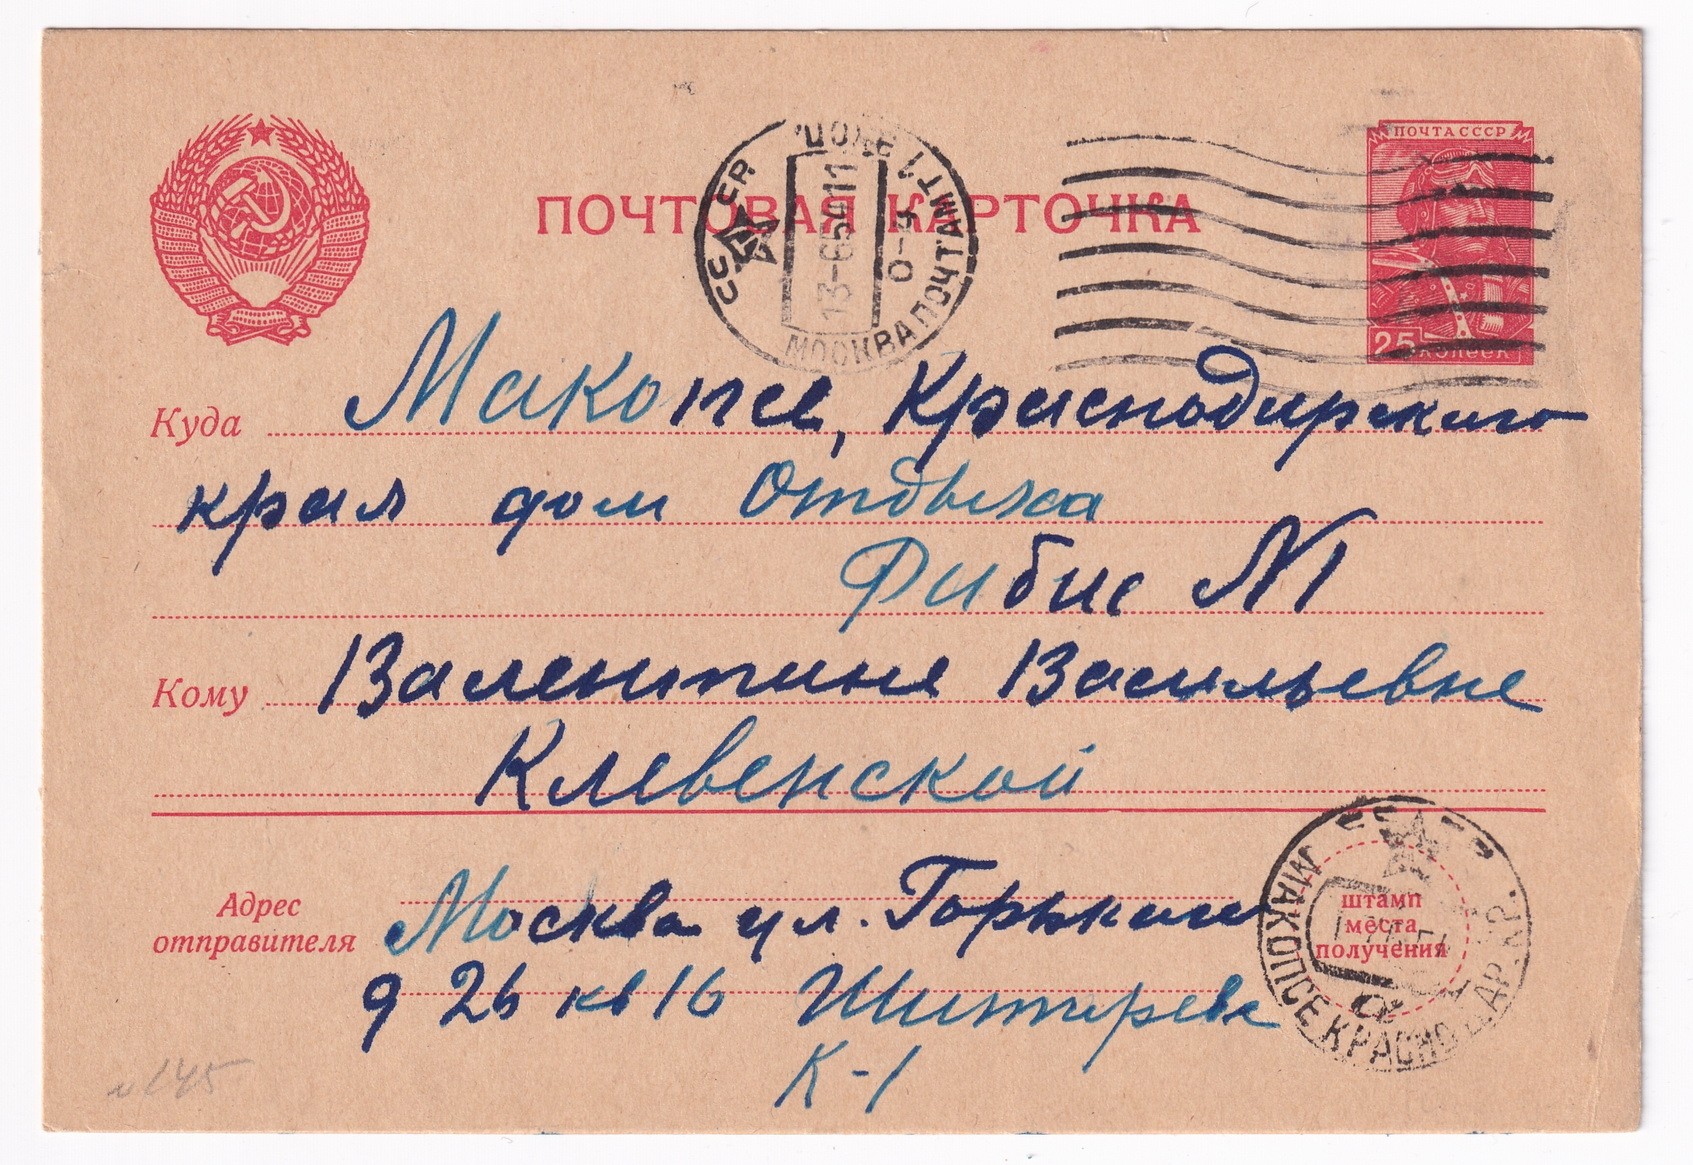 ПОЧТА СССР
25 КОПЕЕК
ПОЧТОВАЯ КАРТОЧКА
СССР
МОСКВА ПОЧТАМТ 1
13-65011
0-4
Куда Макопсе, Краснодарского
края дом отдыха
Рабис N1
Кому Валентине Васильевне
Клевенской
Адрес
отправителя
Москва ул. Горького
д 26 кв 16 Шитырева
К-1
штамп
места
получения
МАКОПСЕ КРАСНОДАР. КР.
145